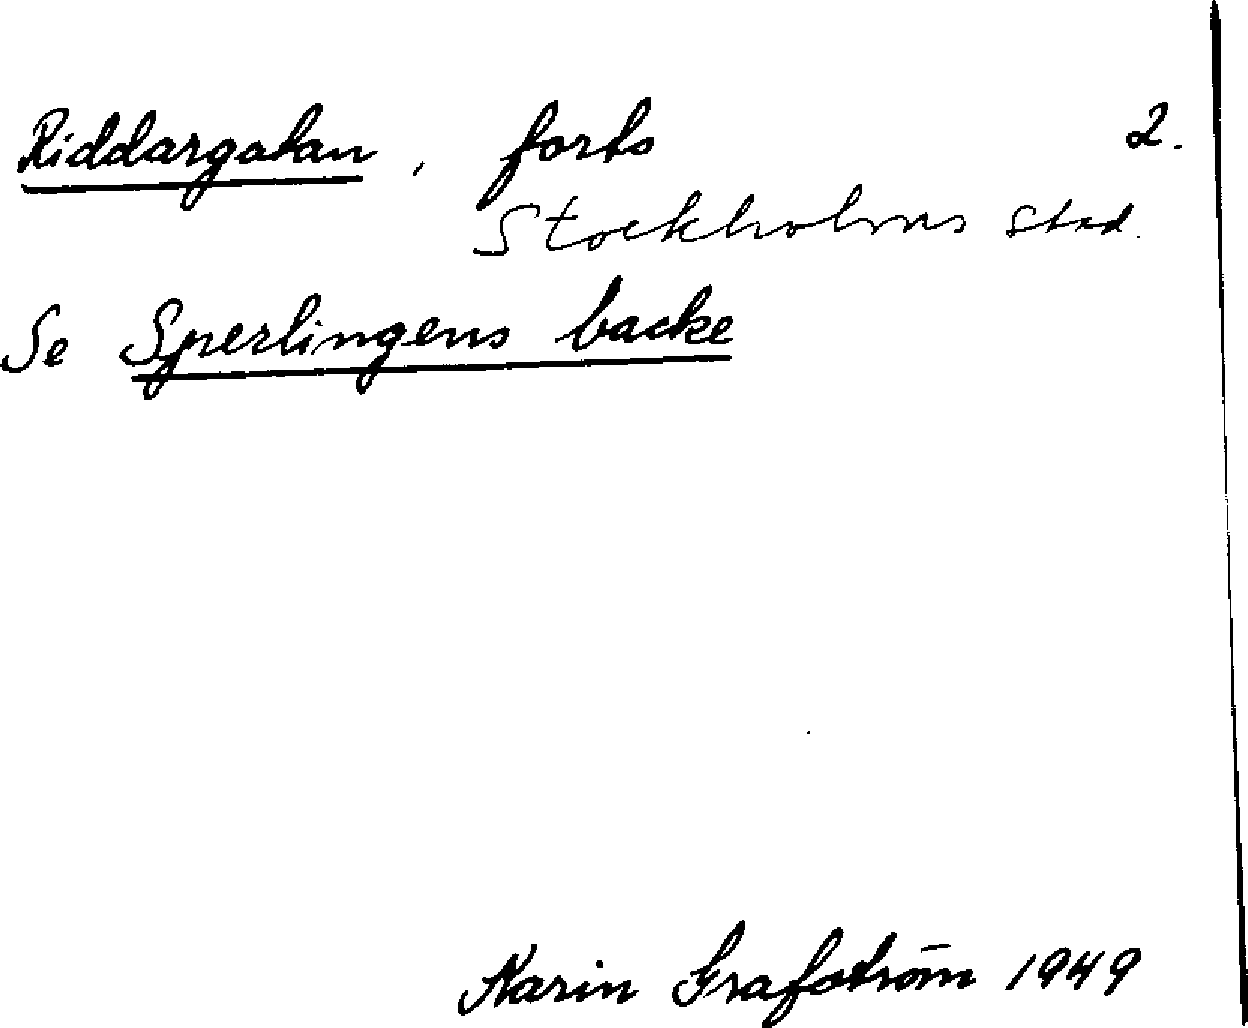 Riddargatan, forts 2.
Stockholms stad.
Se Sperlingens backe
Karin Grafström 1949